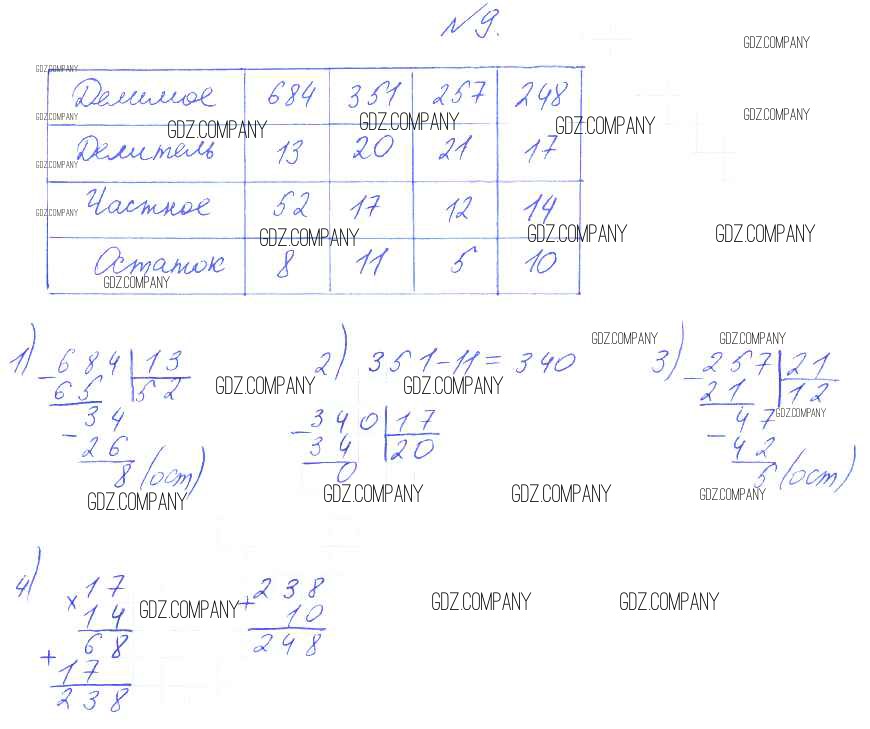 №9.
GDZ.COMPANY
GDZ.COMPANY
Делимое 684 351 257 248
GDZ.COMPANY GDZ.COMPANY
GDZ.COMPANY GDZ.COMPANY GDZ.COMPANY
Делитель 13 20 21 17
GDZ.COMPANY
Частное 52 17 12 14
GDZ.COMPANY
GDZ.COMPANY GDZ.COMPANY GDZ.COMPANY
Остаток 8 11 5 10
GDZ.COMPANY
GDZ.COMPANY GDZ.COMPANY
1) - 684 13
65 52
34
- 26
8 (ост)
2) 351-11=340
- 340 17
34 20
0
3) - 257 21
21 12
47
- 42
5 (ост)
GDZ.COMPANY GDZ.COMPANY GDZ.COMPANY
GDZ.COMPANY GDZ.COMPANY GDZ.COMPANY GDZ.COMPANY
4) × 17
14
68
+ 17
238
+ 238
10
248
GDZ.COMPANY GDZ.COMPANY GDZ.COMPANY